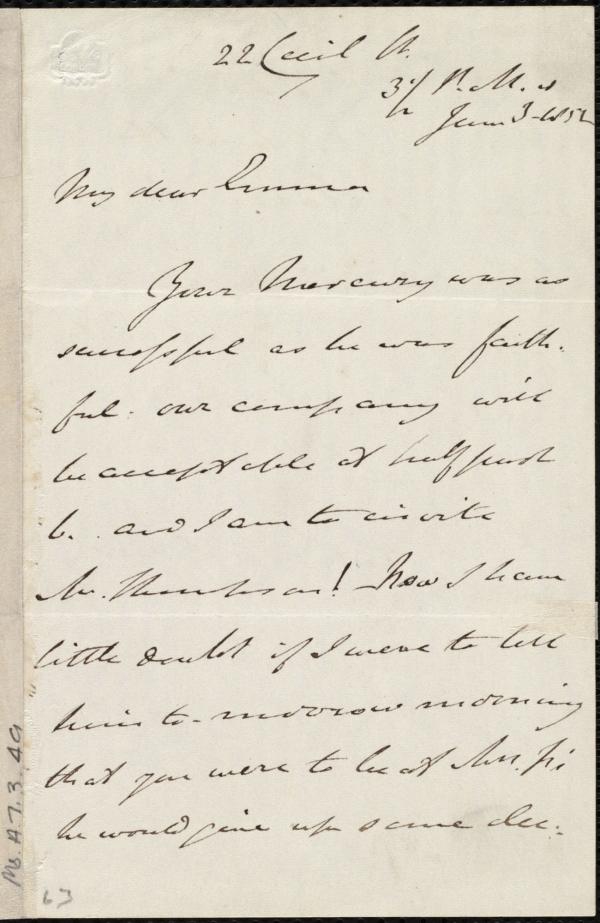 22 Cecil St.
3 1/2 P.M.
June 3 - 1851
My dear Emma
Your Mercury was as
successful as he was faith-
ful. our company will
be acceptable at half past
6. and I am to invite
Mr. Thompson! Now I have
little doubt if I were to tell
him to-morrow morning
that you were to be at Mrs.
he would give up some
Ms. A.7.3.49
63